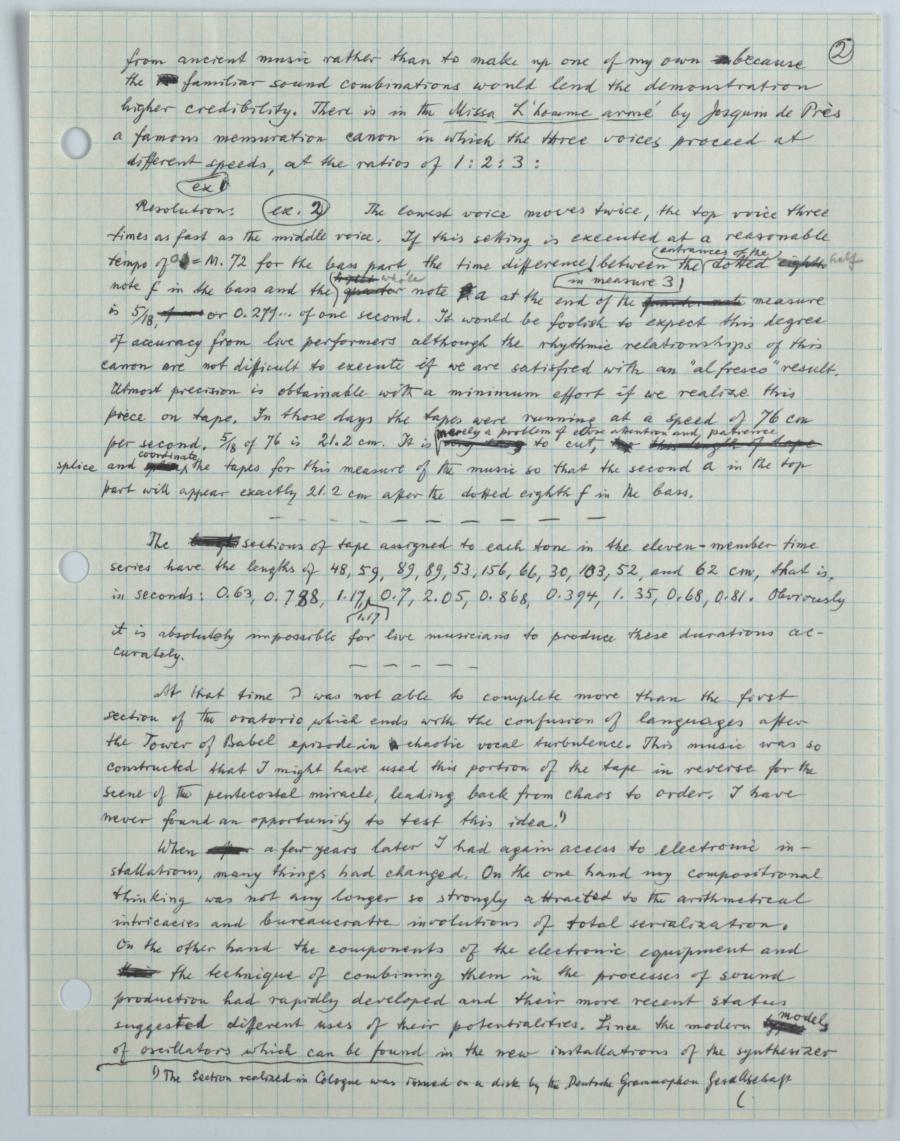 2
from ancient music rather than to make up one of my own because
the familiar sound combinations would lend the demonstration
higher credibility. There is in the Missa L'homme armé by Josquin de Près
a famous mensuration canon in which the three voices proceed at
different speeds, at the ratios of 1 : 2 : 3 :
ex 1
Resolution: ex. 2 The lowest voice moves twice, the top voice three
times as fast as the middle voice. If this setting is executed at a reasonable
entrances of the
tempo of = M. 72 for the bass part the time difference between the dotted eighth half
whole in measure 3
note f in the bass and the quarter note a at the end of the measure
is 5/18, or 0.277... of one second. It would be foolish to expect this degree
of accuracy from live performers although the rhythmic relationships of this
canon are not difficult to execute if we are satisfied with an "al fresco" result.
Utmost precision is obtainable with a minimum effort if we realize this
piece on tape. In those days the tapes were running at a speed of 76 cm
merely a problem of close attention and patience
per second. 5/18 of 76 is 21.2 cm. It is to cut, this length of tape
coordinate
splice and the tapes for this measure of the music so that the second a in the top
part will appear exactly 21.2 cm after the dotted eighth f in the bass.
The sections of tape assigned to each tone in the eleven-member time
series have the lengths of 48, 59, 89, 89, 53, 156, 66, 30, 103, 52, and 62 cm, that is,
in seconds: 0.63, 0.788, 1.17, 0.7, 2.05, 0.868, 0.394, 1.35, 0.68, 0.81. Obviously
1.17
it is absolutely impossible for live musicians to produce these durations ac-
curately.
At that time I was not able to complete more than the first
section of the oratorio which ends with the confusion of languages after
the Tower of Babel episode in chaotic vocal turbulence. This music was so
constructed that I might have used this portion of the tape in reverse for the
scene of the pentecostal miracle, leading back from chaos to order. I have
never found an opportunity to test this idea.¹⁾
When a few years later I had again access to electronic in-
stallations, many things had changed. On the one hand my compositional
thinking was not any longer so strongly attracted to the arithmetical
intricacies and bureaucratic involutions of total serialization.
On the other hand the components of the electronic equipment and
the technique of combining them in the processes of sound
production had rapidly developed and their more recent status
models
suggested different uses of their potentialities. Since the modern
of oscillators which can be found in the new installations of the synthesizer
¹⁾ The section realized in Cologne was issued on a disk by the Deutsche Grammophon Gesellschaft